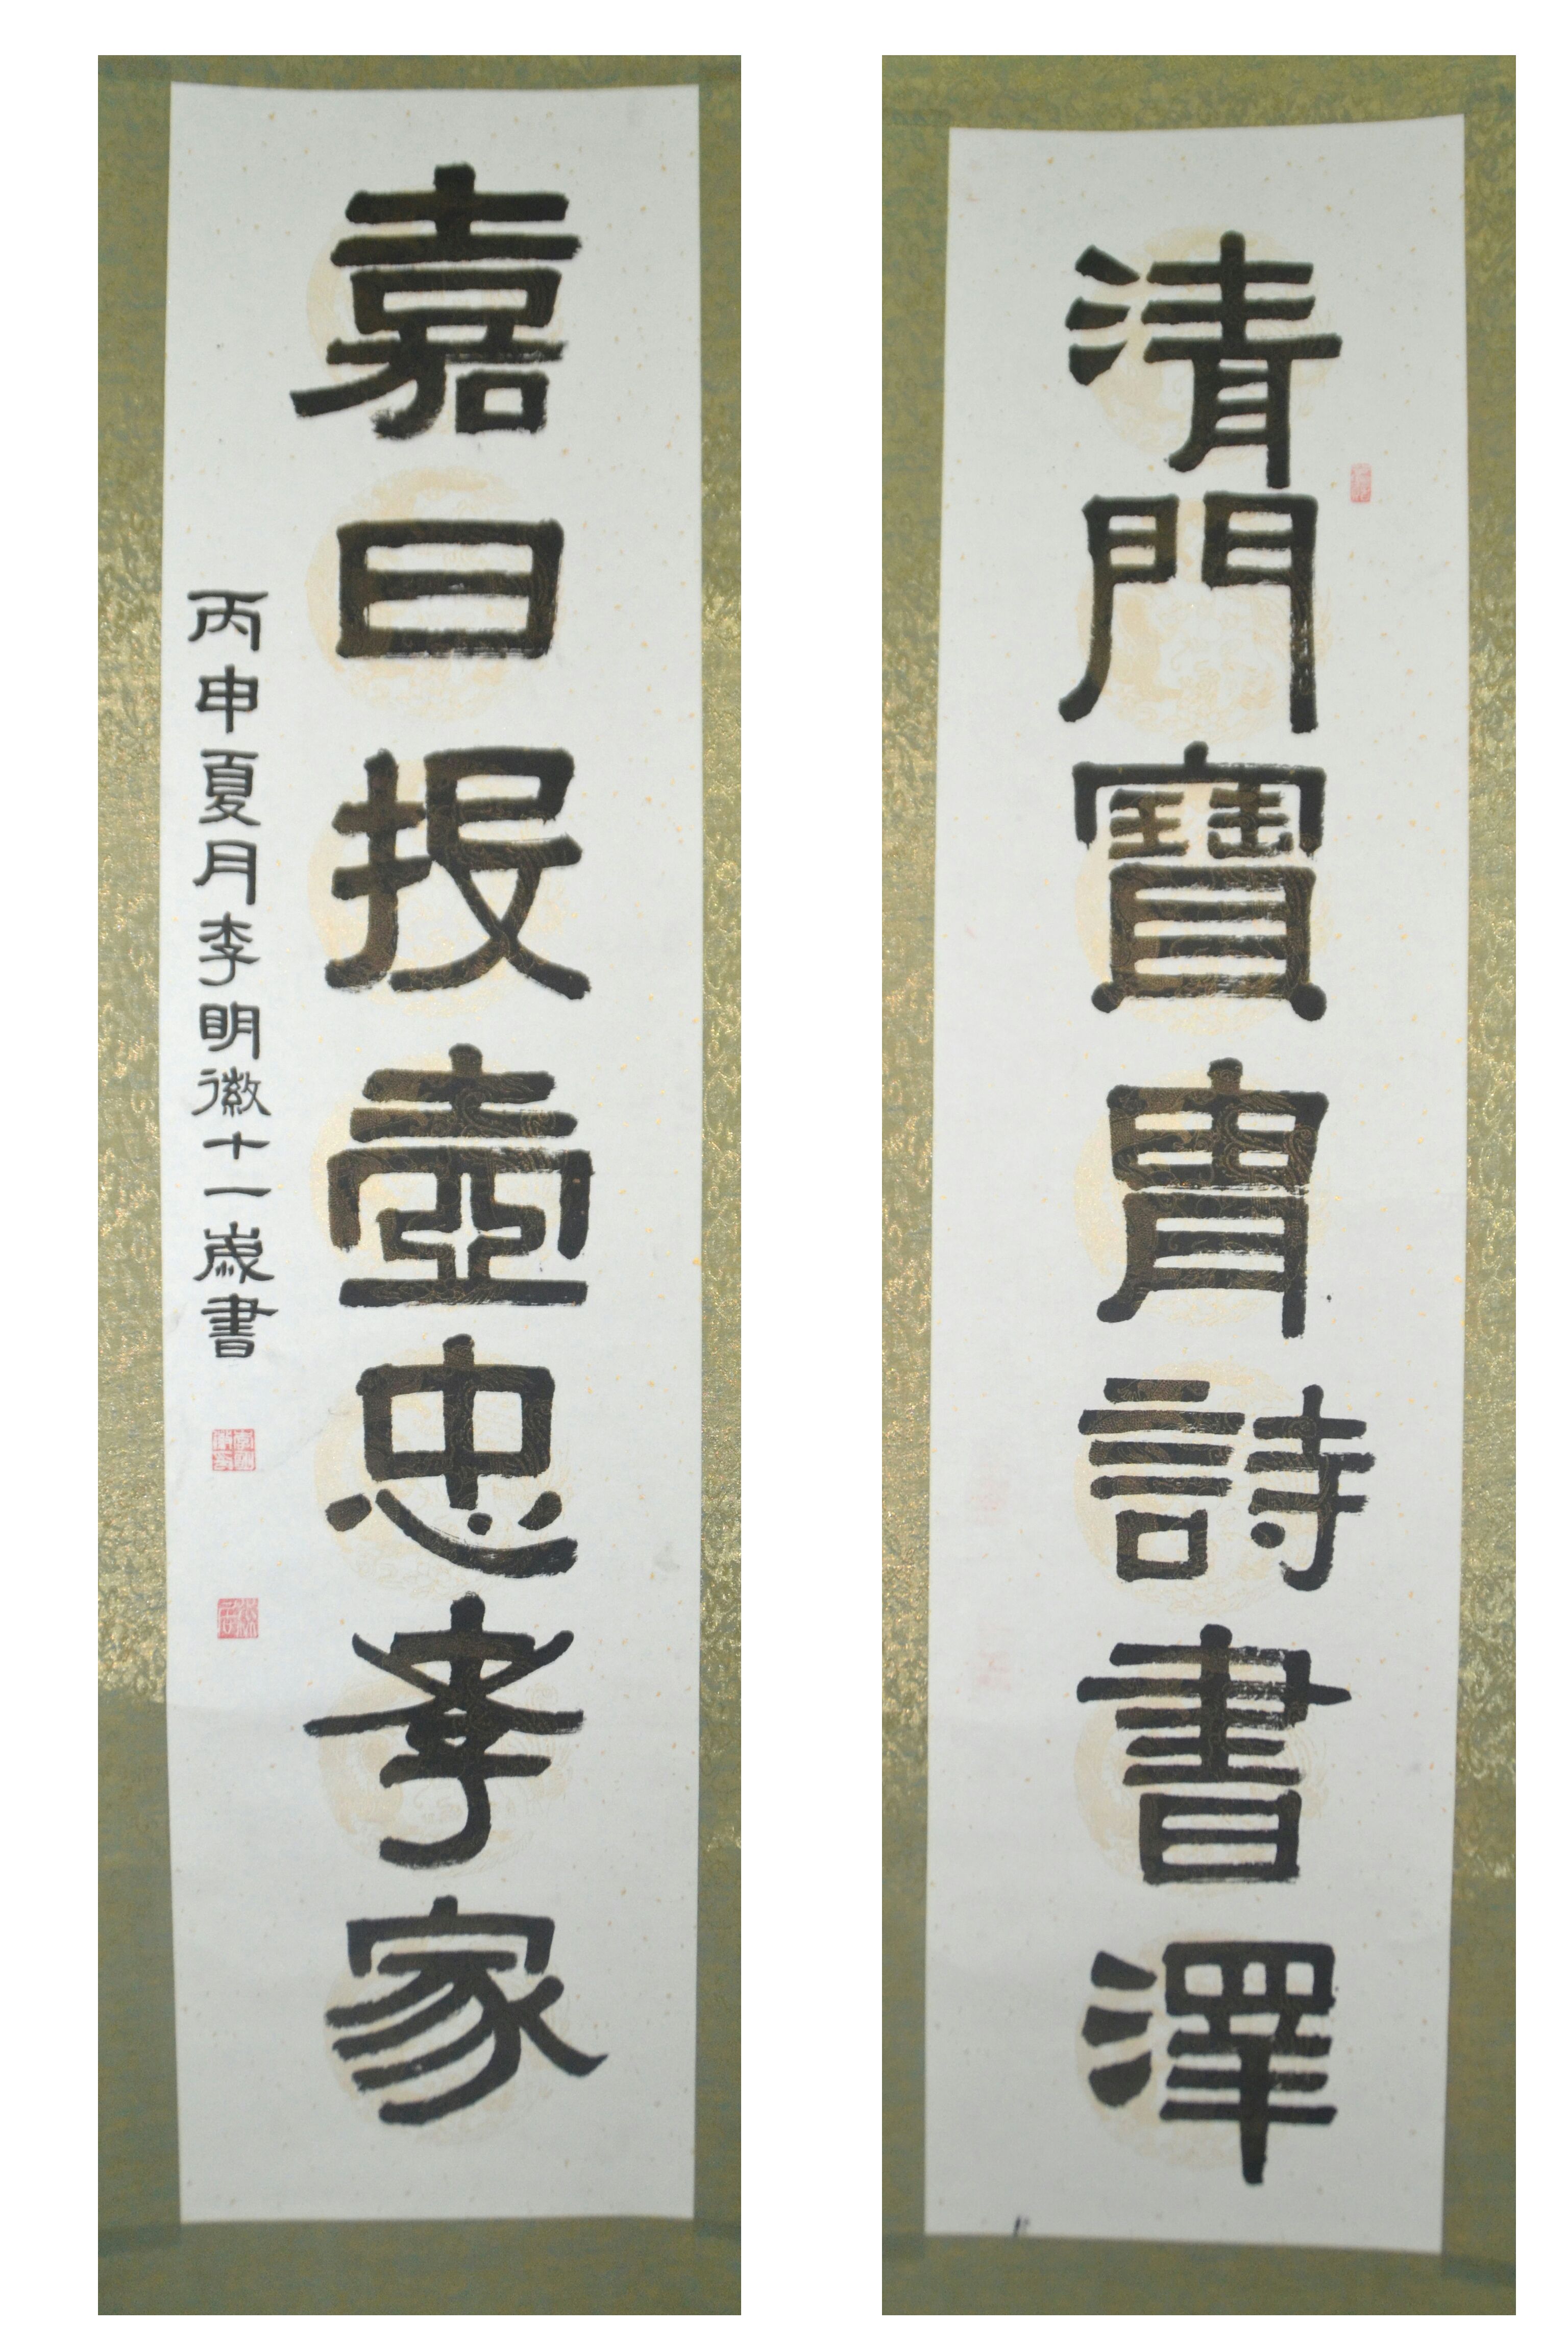 清門寶胄詩書澤
嘉日投壺忠孝家
丙申夏月李明徽十一歲書